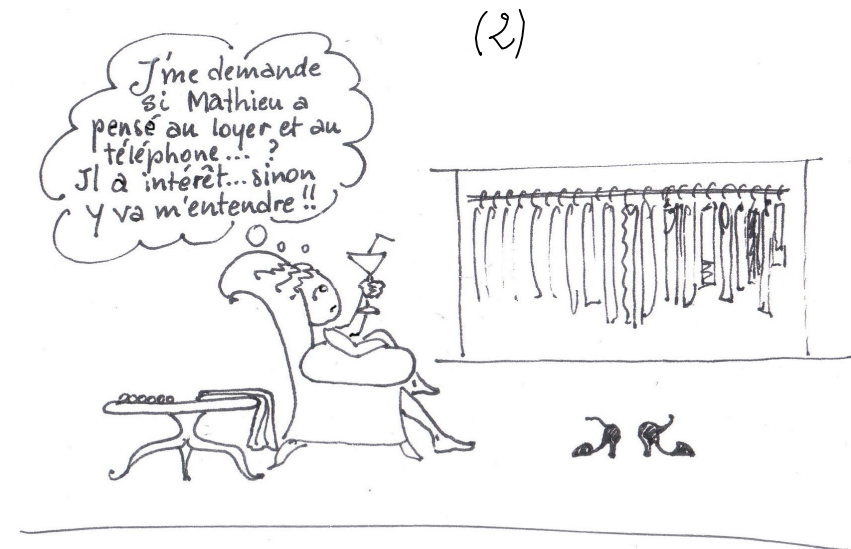 (2)
J'me demande
si Mathieu a
pensé au loyer et au
téléphone... ?
Il a intérêt... sinon
y va m'entendre !!